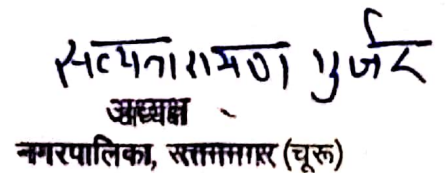 सत्यनारायण गुर्जर
अध्यक्ष
नगरपालिका, (चूरू)